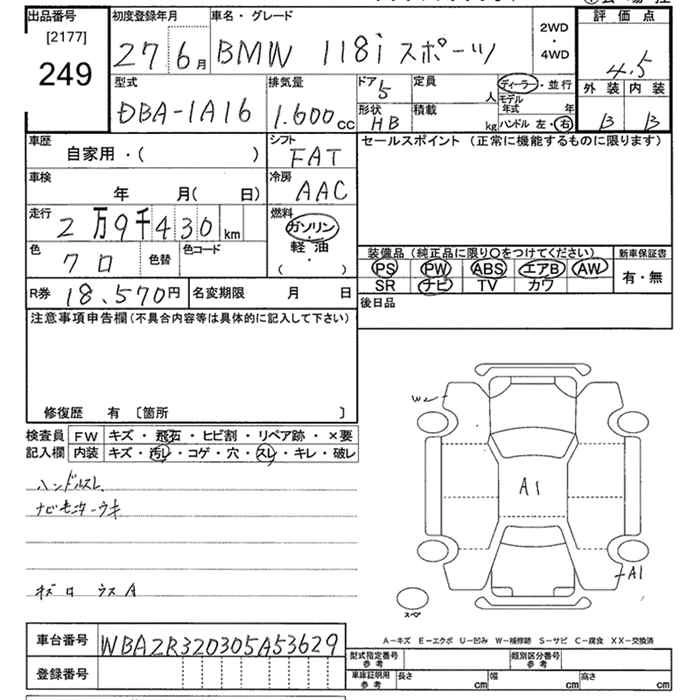 出品番号 初度登録年月 車名・グレード 評価点
[2177]
249
27 6月 BMW 118i スポーツ
2WD
・
4WD
4.5
型式 排気量 ドア 定員 ディーラー・並行 外装 内装
DBA-1A16 1.600cc 5 人 モデル年式 年
形状 積載 ハンドル 左・右
HB kg B B
車歴 シフト セールスポイント (正常に機能するものに限ります)
自家用・( ) FAT
車検 冷房
年 月( 日) AAC
走行 燃料
2万9千430km ガソリン
軽・油
( ・ )
色 色替 色コード
クロ
装備品 (純正品に限り○をつけてください) 新車保証書
PS PW ABS エアB AW 有・無
SR ナビ TV カワ
R券 18.570円 名変期限 月 日 後日品
注意事項申告欄(不具合内容等は具体的に記入して下さい)
修復歴 有 〔箇所 〕
検査員 FW キズ・飛石・ヒビ割・リペア跡・×要
記入欄 内装 キズ・汚レ・コゲ・穴・スレ・キレ・破レ
ハンドルスレ
ナビモニターウキ
W2
A1
A1
スペア
A-キズ E-エクボ U-凹み W-補修跡 S-サビ C-腐食 XX-交換済
車台番号 WBA2R320305A53629
型式指定番号 参考 類別区分番号 参考
登録番号 車庫証明用 参考 長さ cm 幅 cm 高さ cm